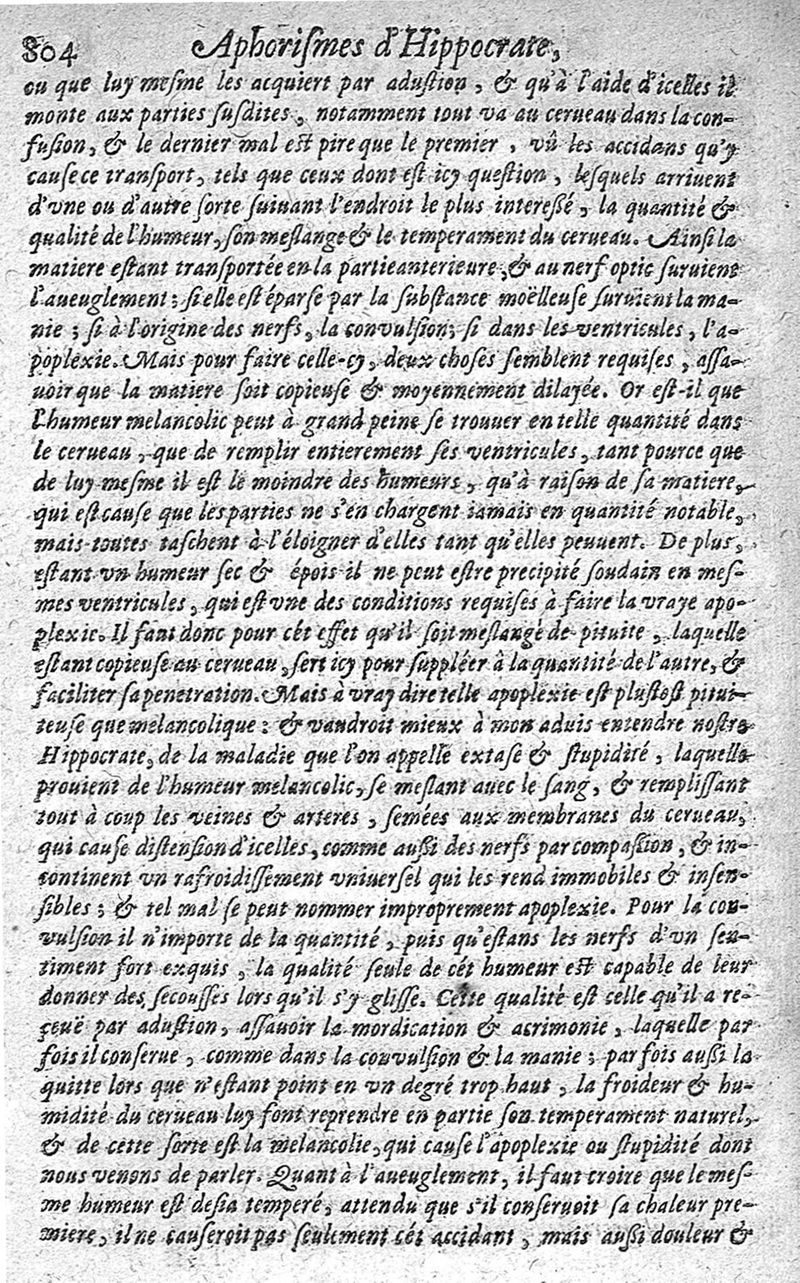 804 Aphoriſmes d'Hippocrate,
ou que luy meſme les acquiert par aduſtion, & qu'à l'aide d'icelles il
monte aux parties ſuſdites, notamment tout va au cerueau dans la con-
fuſion, & le dernier mal eſt pire que le premier, vû les accidans qu'y
cauſe ce tranſport, tels que ceux dont eſt icy queſtion, leſquels arriuent
d'vne ou d'autre ſorte ſuiuant l'endroit le plus intereßé, la quantité &
qualité de l'humeur, ſon meſlange & le temperament du cerueau. Ainſi la
matiere eſtant tranſportée en la partie anterieure, & au nerf optic ſuruient
l'aueuglement; ſi elle eſt éparſe par la ſubſtance moëlleuſe ſuruient la ma-
nie; ſi à l'origine des nerfs, la convulſion; ſi dans les ventricules, l'a-
poplexie. Mais pour faire celle-cy, deux choſes ſemblent requiſes, aſſa-
uoir que la matiere ſoit copieuſe & moyennement dilayée. Or eſt-il que
l'humeur melancolic peut à grand peine ſe trouuer en telle quantité dans
le cerueau, que de remplir entierement ſes ventricules, tant pource que
de luy meſme il eſt le moindre des humeurs, qu'à raiſon de ſa matiere,
qui eſt cauſe que les parties ne s'en chargent iamais en quantité notable,
mais toutes taſchent à l'éloigner d'elles tant qu'elles peuuent. De plus,
eſtant vn humeur ſec & épois il ne peut eſtre precipité ſoudain en meſ-
mes ventricules, qui eſt vne des conditions requiſes à faire la vraye apo-
plexie. Il faut donc pour cét effet qu'il ſoit meſlangé de pituite, laquelle
eſtant copieuſe au cerueau, ſert icy pour ſuppléer à la quantité de l'autre, &
faciliter ſa penetration. Mais à vray dire telle apoplexie eſt pluſtoſt pitui-
teuſe que melancolique: & vaudroit mieux à mon aduis entendre noſtre
Hippocrate, de la maladie que l'on appelle extaſe & ſtupidité, laquelle
prouient de l'humeur melancolic, ſe meſlant avec le ſang, & rempliſſant
tout à coup les veines & arteres, ſemées aux membranes du cerueau,
qui cauſe diſtenſion d'icelles, comme außi des nerfs par compaßion, & in-
continent vn rafroidiſſement vniuerſel qui les rend immobiles & inſen-
ſibles; & tel mal ſe peut nommer improprement apoplexie. Pour la con-
vulſion il n'importe de la quantité, puis qu'eſtans les nerfs d'vn ſen-
timent fort exquis, la qualité ſeule de cét humeur eſt capable de leur
donner des ſecouſſes lors qu'il s'y gliſſe. Cette qualité eſt celle qu'il a re-
çeuë par aduſtion, aſſauoir la mordication & acrimonie, laquelle par
fois il conſerue, comme dans la convulſion & la manie; par fois außi la
quitte lors que n'eſtant point en vn degré trop haut, la froideur & hu-
midité du cerueau luy font reprendre en partie ſon temperament naturel,
& de cette ſorte eſt la melancolie, qui cauſe l'apoplexie ou ſtupidité dont
nous venons de parler. Quant à l'aueuglement, il faut croire que le meſ-
me humeur eſt deſia temperé, attendu que s'il conſeruoit ſa chaleur pre-
miere, il ne cauſeroit pas ſeulement cét accidant, mais außi douleur &